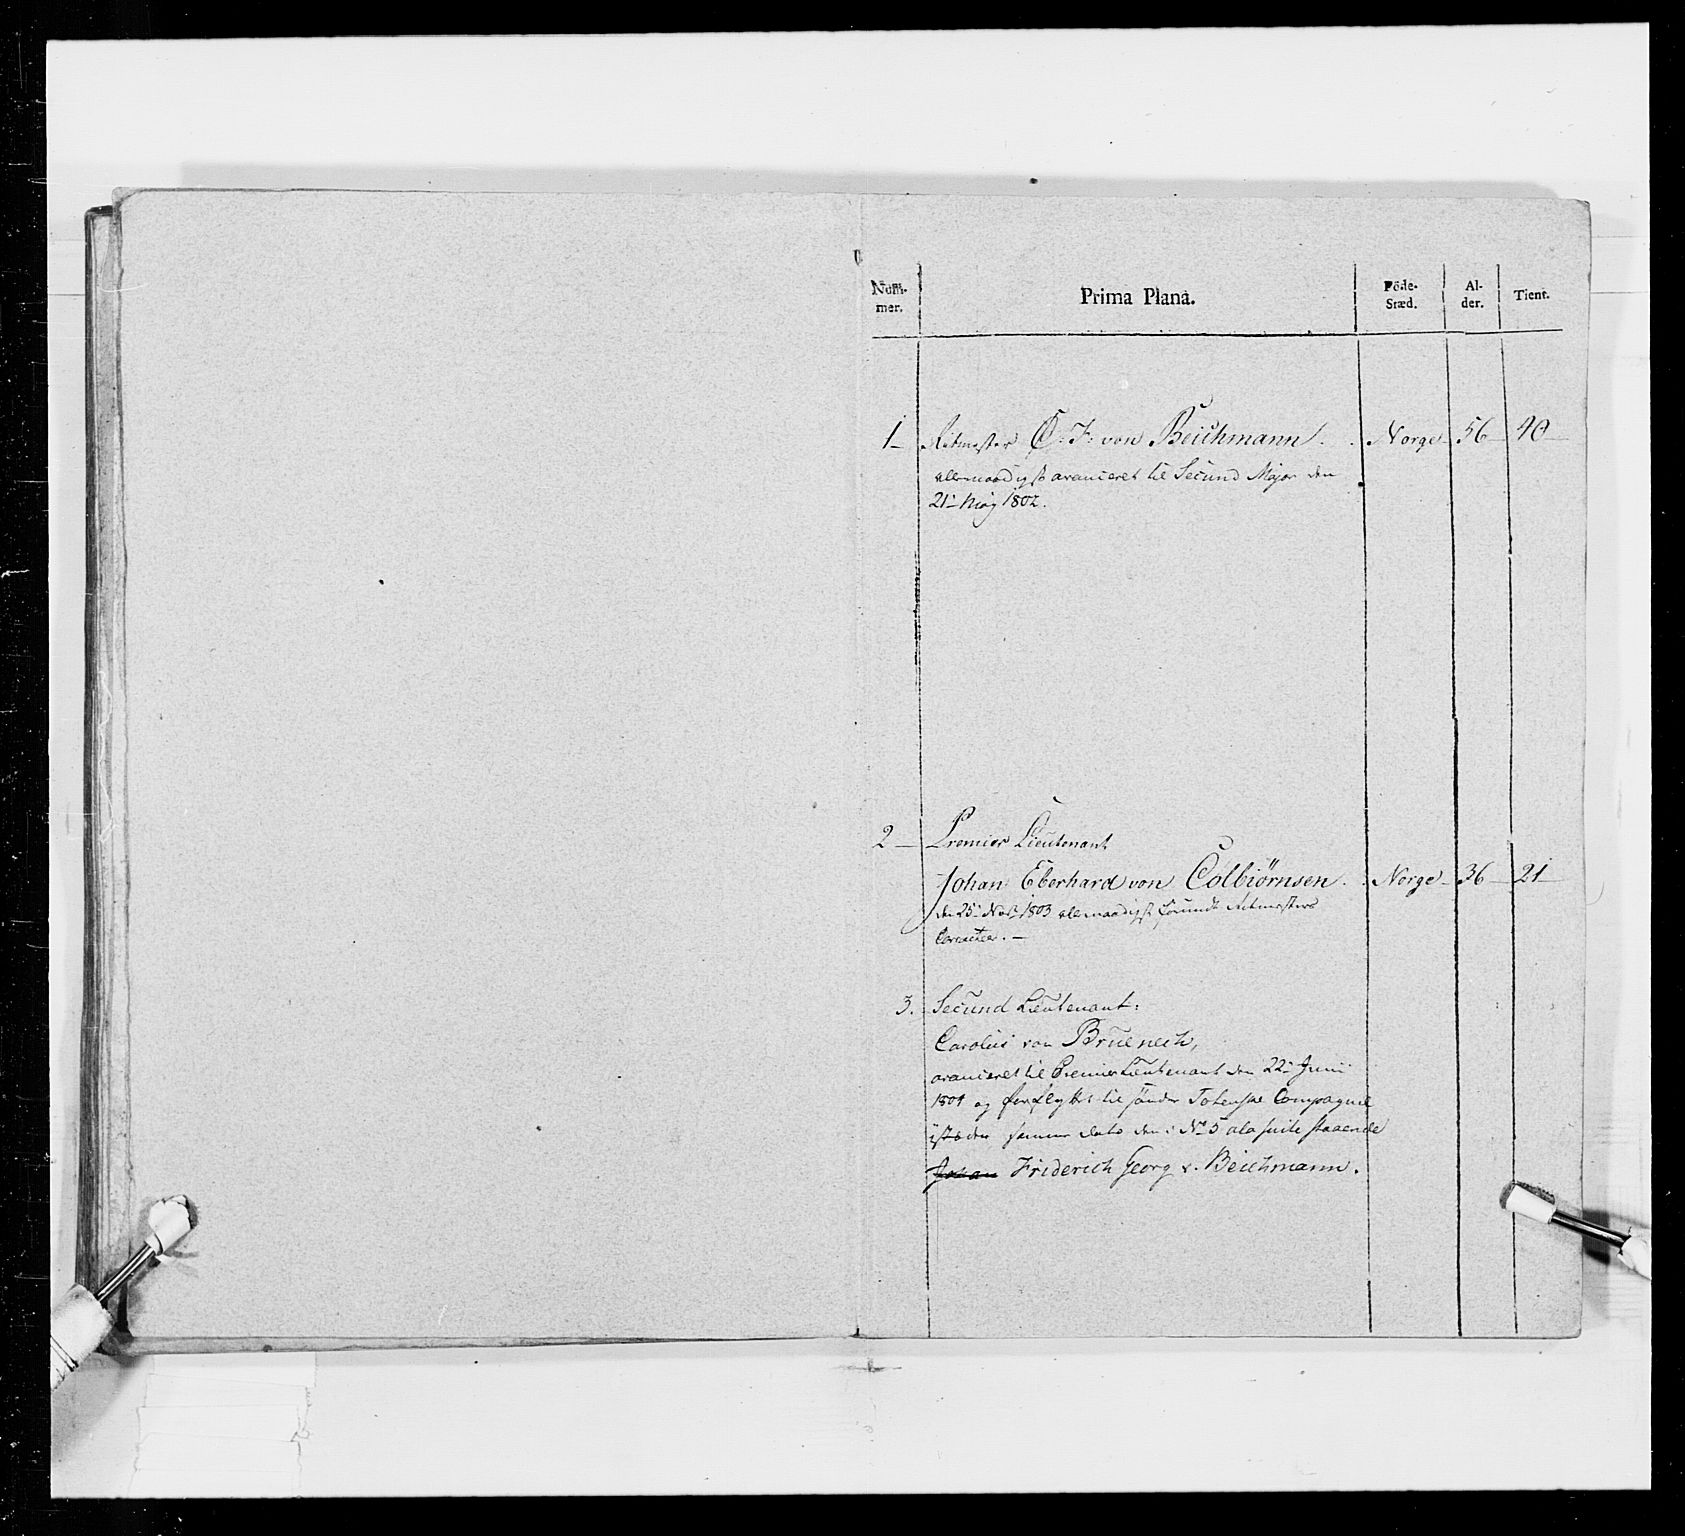 Num-
mer.
Prima Plana.
Föde-
Stæd.
Al-
der.
Tient.
1 Ritmester C: F: von Beichmann. Norge 56 40
allernaadigst avanceret til Secund Major den
21 May 1802.
2 Premier Lieutenant
Johan Eberhard von Colbiörnsen. Norge 36 21
den 25 Novb 1803 allernaadigst forundt Ritmesters
Caracteer.
3. Secund Lieutenant:
Carolus von Bruenech,
avanceret til Premier Lieutenant den 22 Junii
1804 og forflyttet til söndre Totenske Compagnie
isteden samme dato den i No 5 ala suite staaende
Johan Friderich Georg v. Beichmann.